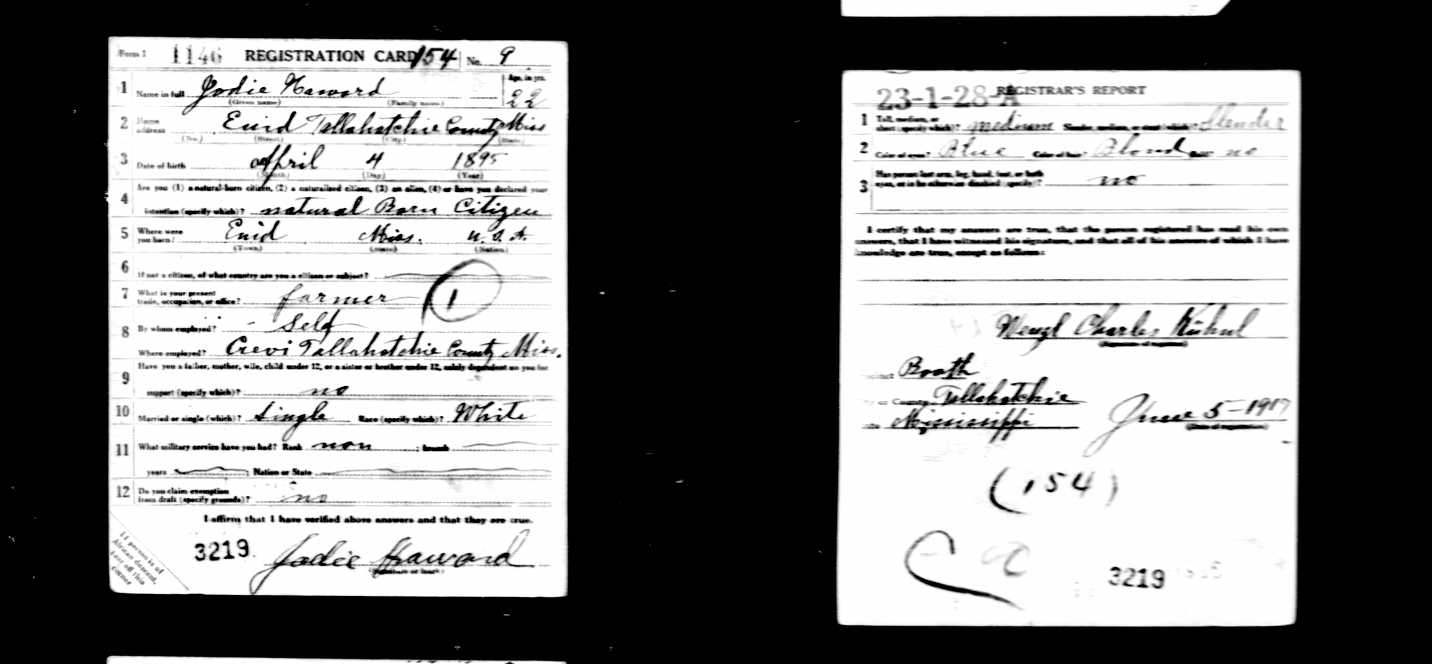 Form 1 1146 REGISTRATION CARD 154 No. 9
1 Name in full Jodie Haword Age, in yrs. 22
(Given name) (Family name)
2 Home address Enid Tallahatchie County Miss
(No.) (Street) (City) (State)
3 Date of birth April 4 1895
(Month) (Day) (Year)
4 Are you (1) a natural-born citizen, (2) a naturalized citizen, (3) an alien, (4) or have you declared your
intention (specify which)? natural Born Citizen
5 Where were you born? Enid Miss. U.S.A.
(Town) (State) (Nation)
6 If not a citizen, of what country are you a citizen or subject?
7 What is your present trade, occupation, or office? farmer 1
8 By whom employed? - Self
Where employed? Crevi Tallahatchie County Miss.
9 Have you a father, mother, wife, child under 12, or a sister or brother under 12, solely dependent on you for
support (specify which)? no
10 Married or single (which)? single Race (specify which)? White
11 What military service have you had? Rank non ; branch
years ; Nation or State
12 Do you claim exemption from draft (specify grounds)? no
I affirm that I have verified above answers and that they are true.
3219 Jodie Haword
(Signature or mark)
If person is of
African descent,
tear off this
corner
23-1-28-A REGISTRAR'S REPORT
1 Tall, medium, or short (specify which)? medium Slender, medium, or stout (which)? Slender
2 Color of eyes? Blue Color of hair? Blond Bald? no
3 Has person lost arm, leg, hand, foot, or both eyes, or is he otherwise disabled (specify)? no
I certify that my answers are true, that the person registered has read his own
answers, that I have witnessed his signature, and that all of his answers of which I have
knowledge are true, except as follows:
Charles Kuhnl
(Signature of registrar)
Booth
County Tallahatchie
Mississippi June 5-1917
(Date of registration)
(154)
3219